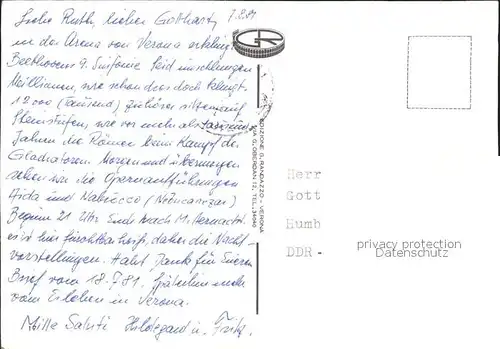 Liebe Ruth, lieber Gotthart, 7.8.81
in der Arena von Verona erklingt
Beethovens 9. Sinfonie. Seid umschlungen
Millionen, wie schön dies doch klingt.
12000 (Tausend) Zuhörer sitzen auf
Steinstufen, wie vor mehr als tausend
Jahren die Römer beim Kampf der
Gladiatoren. Morgen und übermorgen
sehen wir die Opernaufführungen
Aida und Nabucco
Beginn 21 Uhr Ende nach Mitternacht.
es ist hier furchtbar heiß, daher die Nacht-
vorstellungen. Habt Dank für Euren
Brief vom 18.7.81. Später mehr
vom Erleben in Verona.
Mille Saluti Hildegard u. Fritz.
GR
EDIZIONE G. RANDAZZO - VERONA
VIA G. OBERDAN, 12, TEL.
Herr
Gott
Humb
DDR -
privacy protection
Datenschutz